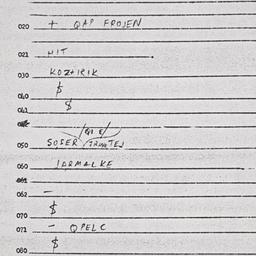 020 + QAP FROJEN
021 HIT
030 KOZTIRIK
040 $
041 $
050 SOFER
060 JARMALKE
061
062 -
$
070
071 - OPELC
$
080